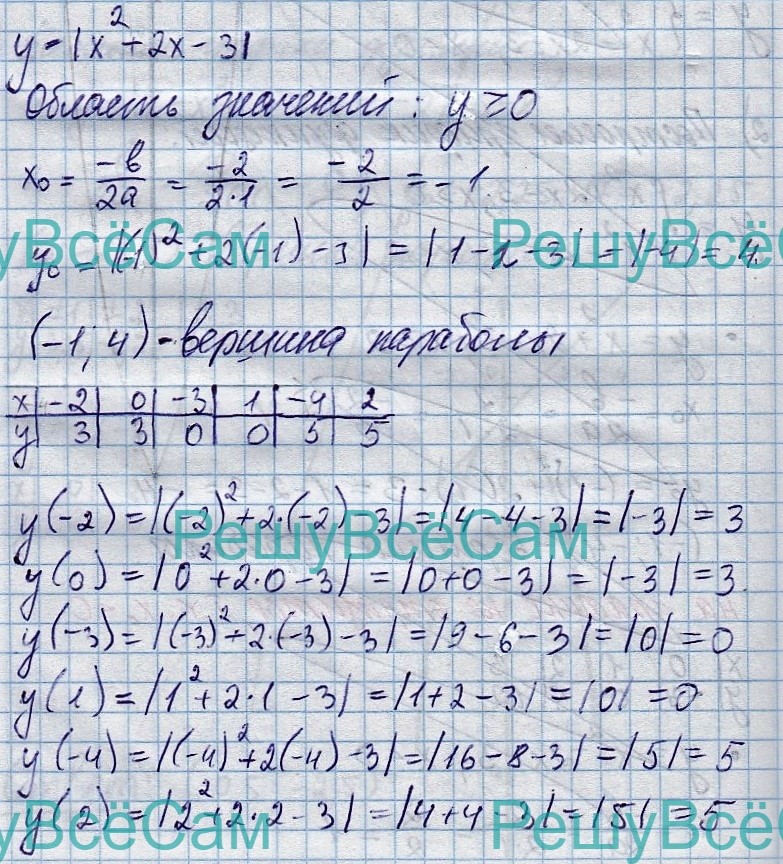 y = |x² + 2x - 3|
Область значений: y ≥ 0
x₀ = -b/2a = -2/2·1 = -2/2 = -1
y₀ = |(-1)² + 2(-1) - 3| = |1 - 2 - 3| = |-4| = 4
РешуВсёСам РешуВсёСам
(-1; 4) - вершина параболы
x | -2 | 0 | -3 | 1 | -4 | 2
y | 3 | 3 | 0 | 0 | 5 | 5
y(-2) = |(-2)² + 2·(-2) - 3| = |4 - 4 - 3| = |-3| = 3
РешуВсёСам
y(0) = |0² + 2·0 - 3| = |0 + 0 - 3| = |-3| = 3.
y(-3) = |(-3)² + 2·(-3) - 3| = |9 - 6 - 3| = |0| = 0
y(1) = |1² + 2·1 - 3| = |1 + 2 - 3| = |0| = 0
y(-4) = |(-4)² + 2(-4) - 3| = |16 - 8 - 3| = |5| = 5
y(2) = |2² + 2·2 - 3| = |4 + 4 - 3| = |5| = 5
РешуВсёСам РешуВсёСам